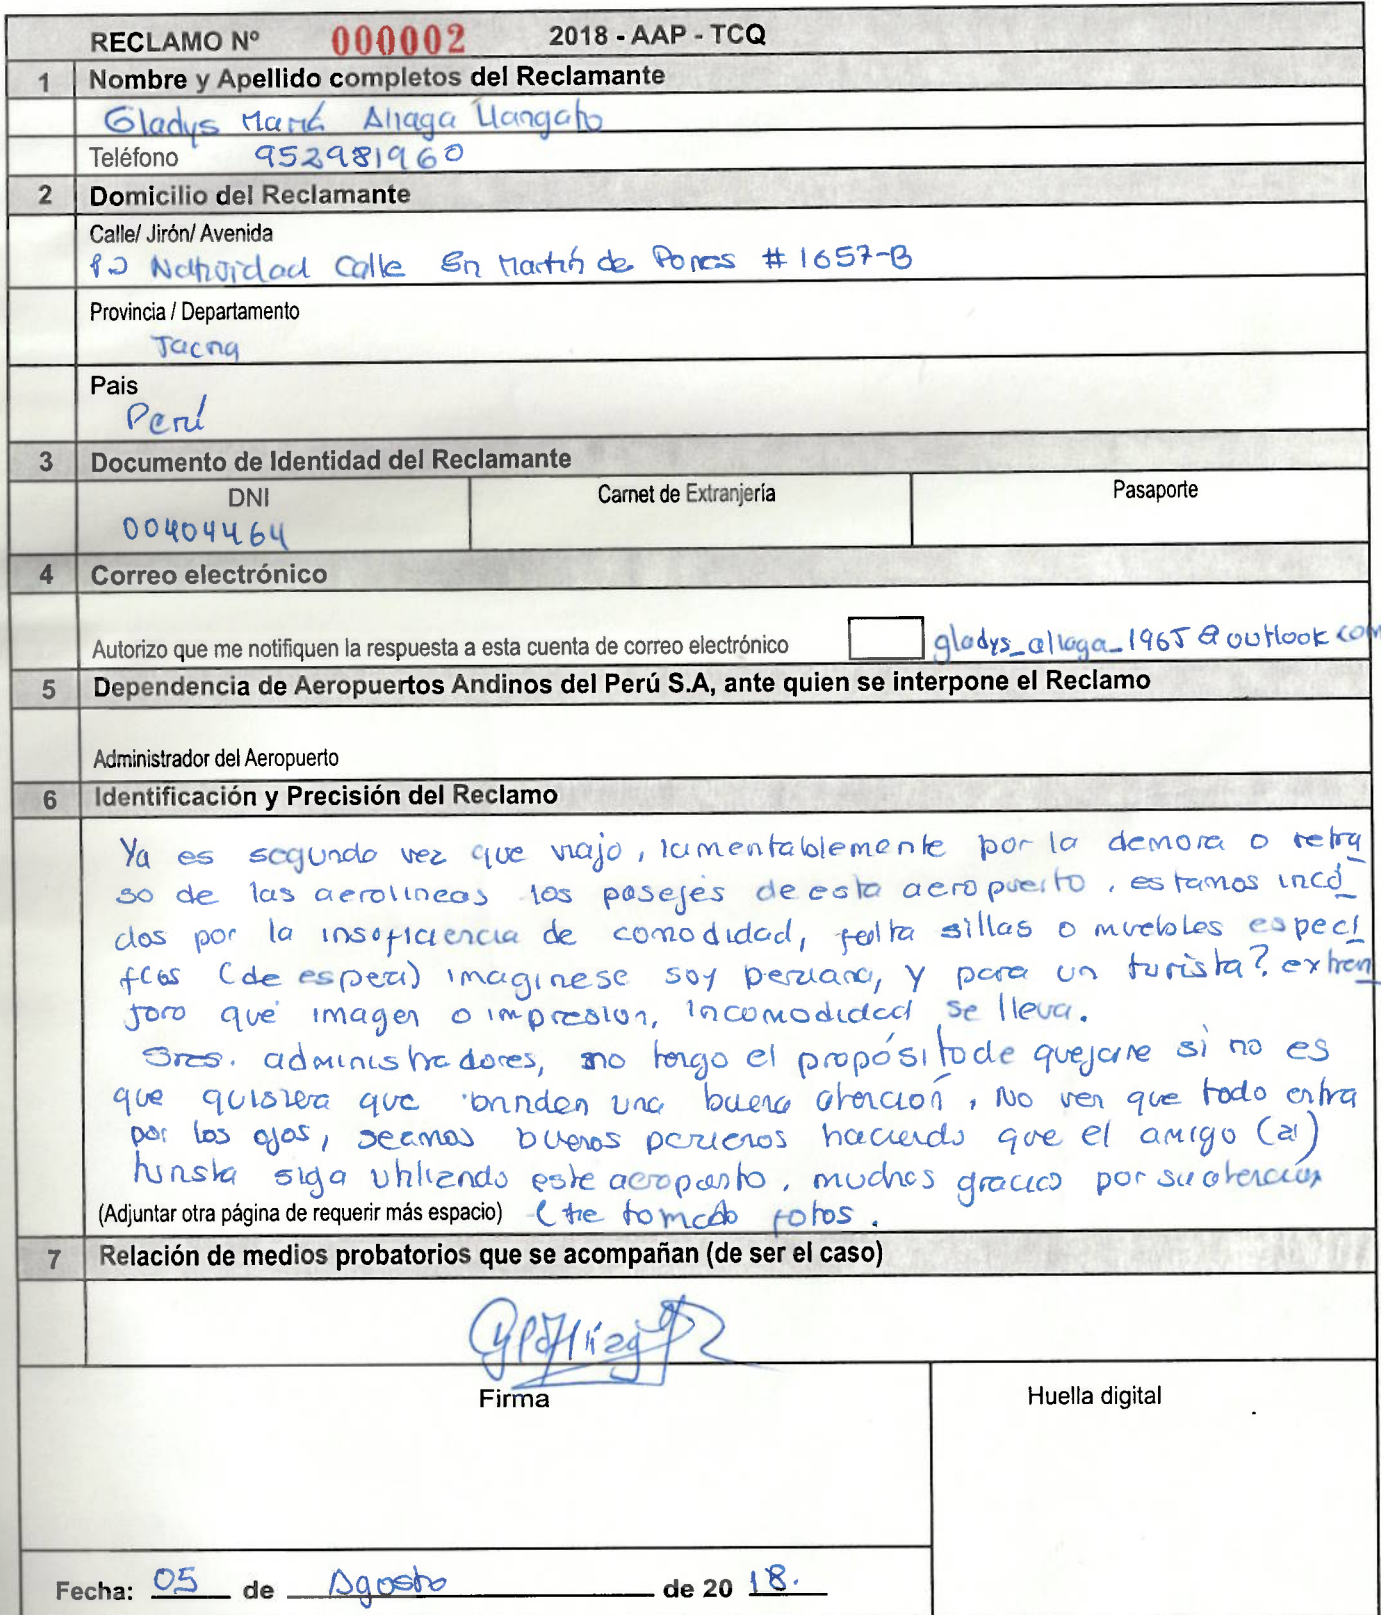 RECLAMO Nº 000002 2018 - AAP - TCQ
1 Nombre y Apellido completos del Reclamante
Gladys María Aliaga Llangato
Teléfono 952981960
2 Domicilio del Reclamante
Calle/ Jirón/ Avenida
Natividad Calle Sn Martín de Porres # 1657-B
Provincia / Departamento
Tacna
Pais
Perú
3 Documento de Identidad del Reclamante
DNI Carnet de Extranjería Pasaporte
00404464
4 Correo electrónico
Autorizo que me notifiquen la respuesta a esta cuenta de correo electrónico gladys_aliaga_1965@outlook com
5 Dependencia de Aeropuertos Andinos del Perú S.A, ante quien se interpone el Reclamo
Administrador del Aeropuerto
6 Identificación y Precisión del Reclamo
Ya es segundo vez que viajo, lamentablemente por la demora o retra
so de las aerolineas los pasejes de esta aeropuerto, estamos incó
dos por la insuficiencia de comodidad, falta sillas o muebles especi
ficas (de espera) imaginese soy peruana, y para un turista? extran
jero qué imagen o impresion, incomodidad se lleva.
Sres. administradores, no tengo el propósito de quejarme si no es
que quisiera que brinden una buena atención, No ven que todo entra
por los ojos, seamos buenos peruanos haciendo que el amigo (a)
turista siga utilizando este aeropuerto, muchas gracias por su atencion
(Adjuntar otra página de requerir más espacio) (He tomado fotos.
7 Relación de medios probatorios que se acompañan (de ser el caso)
Firma Huella digital
Fecha: 05 de Agosto de 20 18.